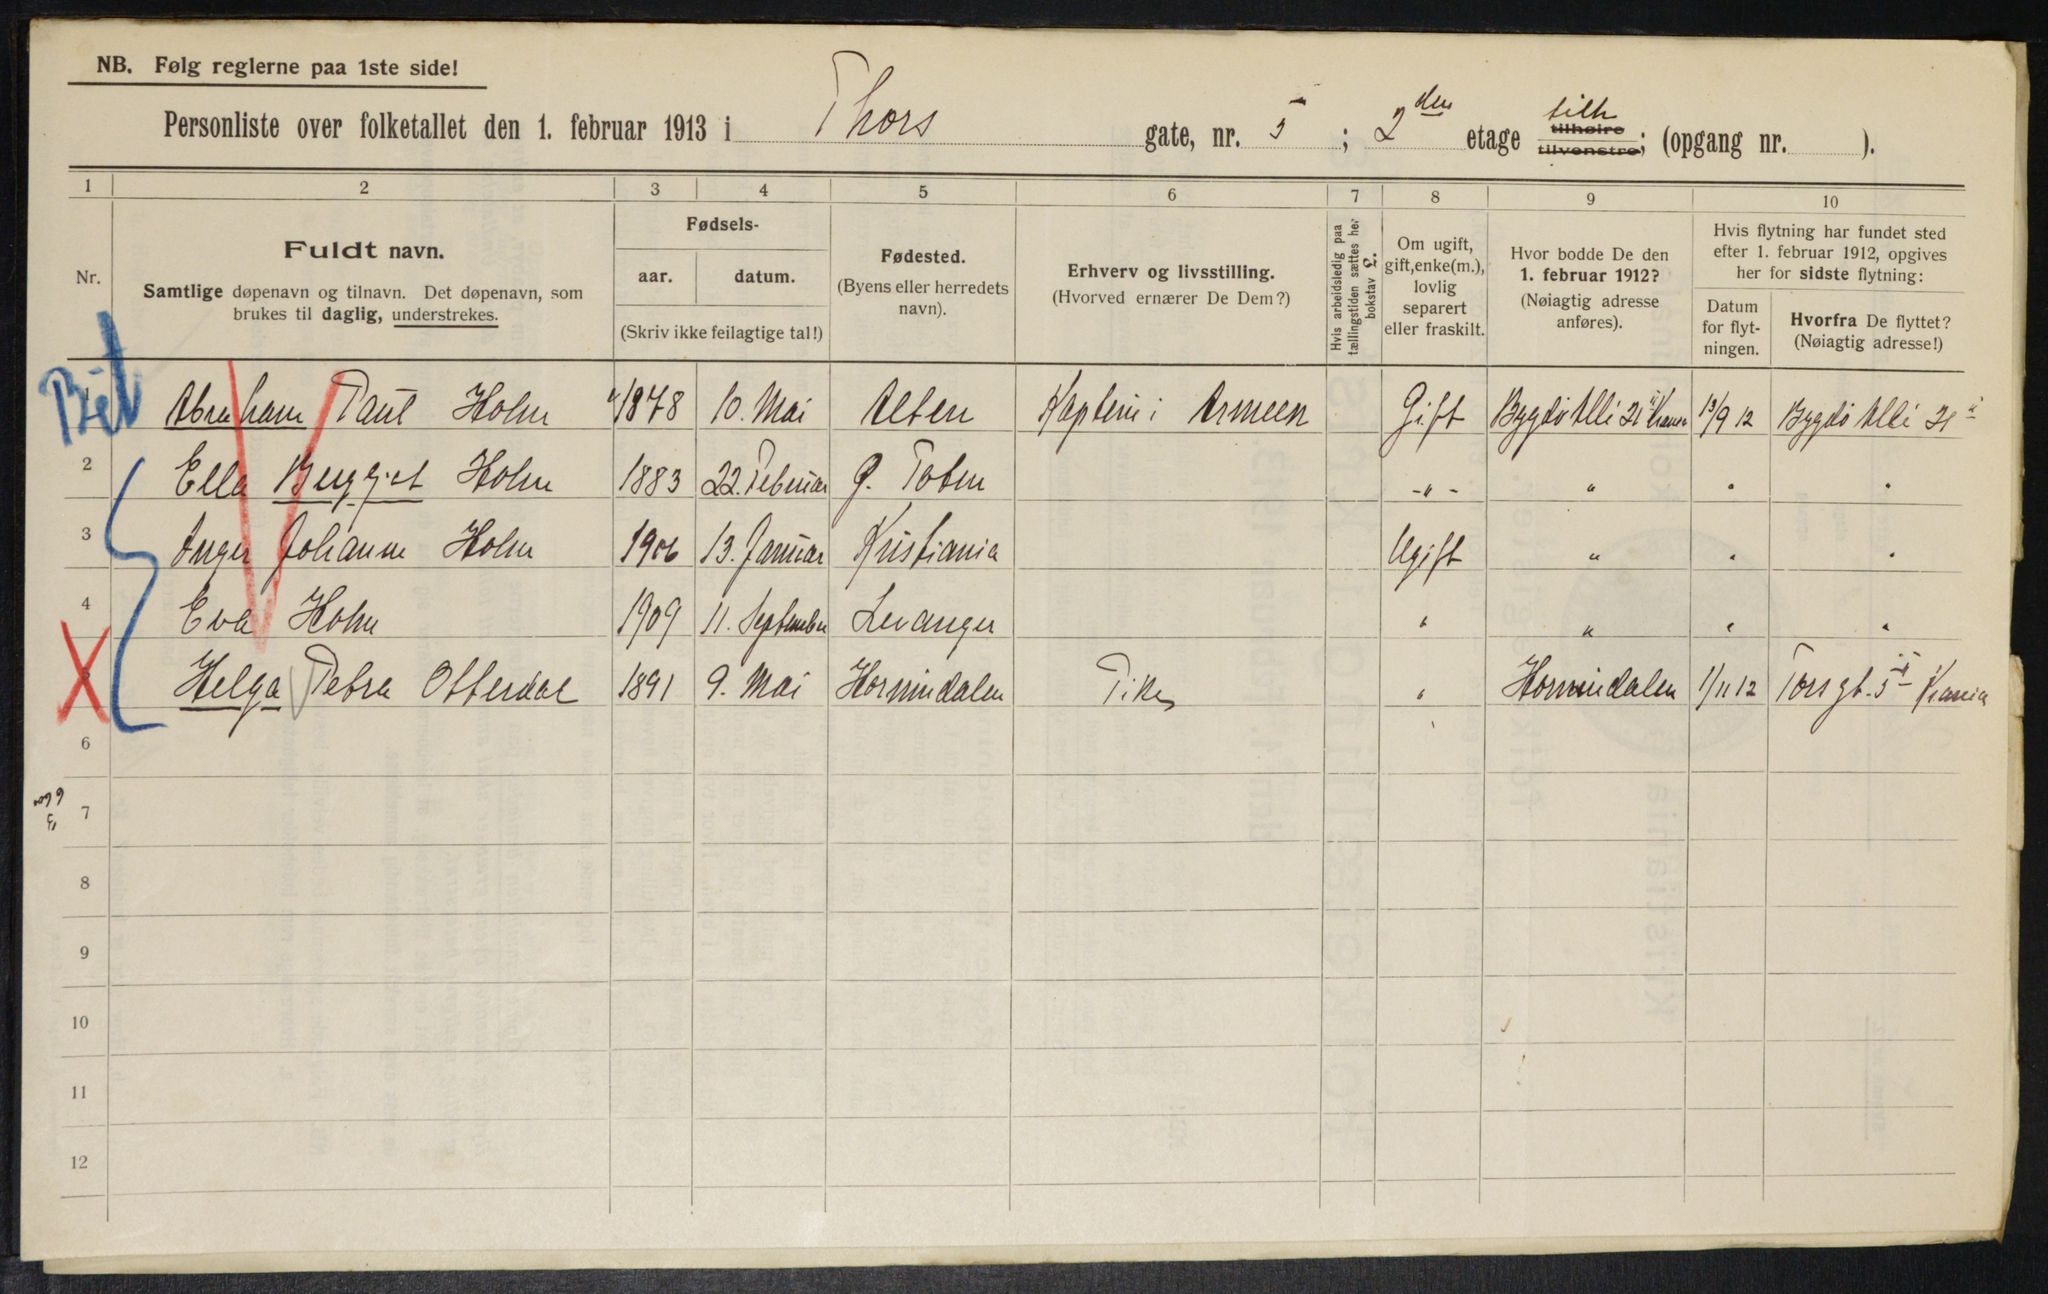 NB. Følg reglerne paa 1ste side!
Personliste over folketallet den 1. februar 1913 i Thors gate, nr. 5 ; 2den etage tilh tilhøire tilvenstre; (opgang nr. ).
1 2 3 4 5 6 7 8 9 10
Nr.
Fuldt navn.
Samtlige døpenavn og tilnavn. Det døpenavn, som
brukes til daglig, understrekes.
Fødsels-
aar. datum.
(Skriv ikke feilagtige tal!)
Fødested.
(Byens eller herredets
navn).
Erhverv og livsstilling.
(Hvorved ernærer De Dem?)
Hvis arbeidsledig paa
tællingstiden sættes her
bokstav L.
Om ugift,
gift, enke(m.),
lovlig
separert
eller fraskilt.
Hvor bodde De den
1. februar 1912?
(Nøiagtig adresse
anføres).
Hvis flytning har fundet sted
efter 1. februar 1912, opgives
her for sidste flytning:
Datum
for flyt-
ningen.
Hvorfra De flyttet?
(Nøiagtig adresse!)
Bét
1 Abraham Paul Holm 1878 10. Mai Alten Kaptein i Armeen Gift Bygdø Allé 21 II Krania 13/9 12 Bygdø Allé 21 II
2 Ella Bergljot Holm 1883 22. Februar Ø. Toten -"- " " "
3 Inger Johanne Holm 1906 13. Januar Kristiania Ugift " " "
4 Eva Holm 1909 11. September Levanger " " " "
5 Helga Petra Otterdal 1891 9. Mai Hornindalen Pike " Hornindalen 1/11 12 Torsgt. 5 II Krania
6
7
8
9
10
11
12